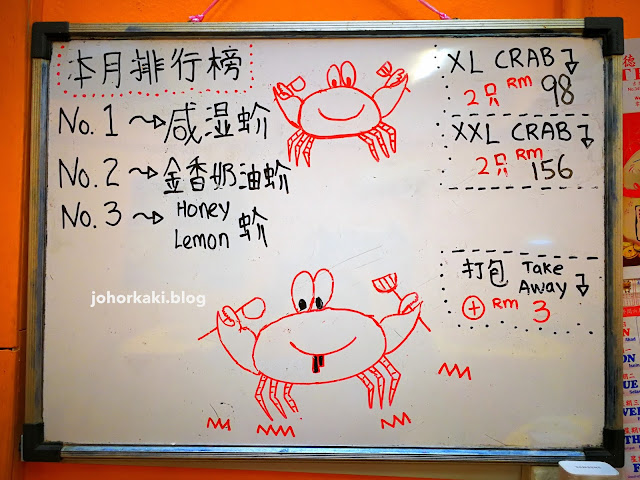 本月排行榜
No. 1 ~→ 咸湿蚧
No. 2 ~→ 金香奶油蚧
No. 3 ~→ Honey Lemon 蚧
XL CRAB
2只 RM 98
XXL CRAB
2只 RM 156
打包 Take Away
+ RM 3
johorkaki.blog